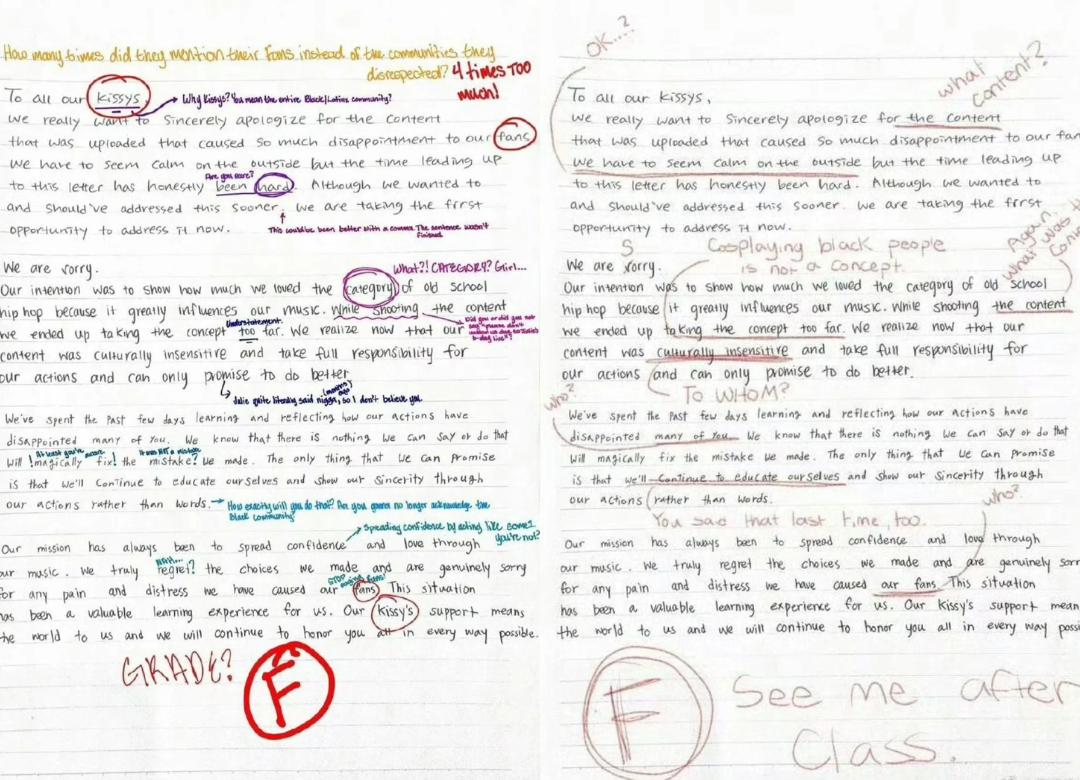 How many times did they mention their fans instead of the communities they
disrespected? 4 times TOO
much!
To all our kissys,
Why Kissys? You mean the entire Black/Latinx community?
We really want to Sincerely apologize for the content
that was uploaded that caused so much disappointment to our fans
We have to seem calm on the outside but the time leading up
Are you sure?
to this letter has honestly been hard. Although we wanted to
and should've addressed this sooner, we are taking the first
opportunity to address it now.
This could've been better with a comma. The sentence wasn't
finished
We are sorry.
What?! CATEGORY? Girl...
Our intention was to show how much we loved the category of old school
hip hop because it greatly influences our music. While shooting the content
Did you or did you not
say
Understatement.
we ended up taking the concept too far. We realize now that our
content was culturally insensitive and take full responsibility for
our actions and can only promise to do better
Julie quite literally said nigga, so I don't believe you.
(months) ago
We've spent the past few days learning and reflecting how our actions have
disappointed many of you. We know that there is nothing we can say or do that
It was NOT a mistake
will !magically fix! the mistake? we made. The only thing that we can promise
is that we'll continue to educate ourselves and show our sincerity through
our actions rather than words.
How exactly will you do that? Are you gonna no longer acknowledge the
Black community?
Spreading confidence by acting like some1
you're not?
Our mission has always been to spread confidence and love through
our music. We truly regret? the choices we made and are genuinely sorry
STOP
fans!
for any pain and distress we have caused our fans This situation
has been a valuable learning experience for us. Our Kissy's support means
the world to us and we will continue to honor you all in every way possible.
GRADE? F
OK....?
what
content?
To all our kissys,
We really want to Sincerely apologize for the content
that was uploaded that caused so much disappointment to our fan
We have to seem calm on the outside but the time leading up
to this letter has honestly been hard. Although we wanted to
and should've addressed this sooner, we are taking the first
opportunity to address it now.
S
Cosplaying black people
is not a concept.
Again,
what was
We are sorry.
Our intention was to show how much we loved the category of old school
hip hop because it greatly influences our music. While shooting the content
we ended up taking the concept too far. We realize now that our
content was culturally insensitive and take full responsibility for
our actions and can only promise to do better.
who?
To WHOM?
We've spent the past few days learning and reflecting how our actions have
disappointed many of you. We know that there is nothing we can say or do that
will magically fix the mistake we made. The only thing that we can promise
is that we'll continue to educate ourselves and show our sincerity through
our actions rather than words.
who?
You said that last time, too.
Our mission has always been to spread confidence and love through
our music. We truly regret the choices we made and are genuinely sorry
for any pain and distress we have caused our fans This situation
has been a valuable learning experience for us. Our Kissy's support mean
the world to us and we will continue to honor you all in every way possi
F
See me after
Class.